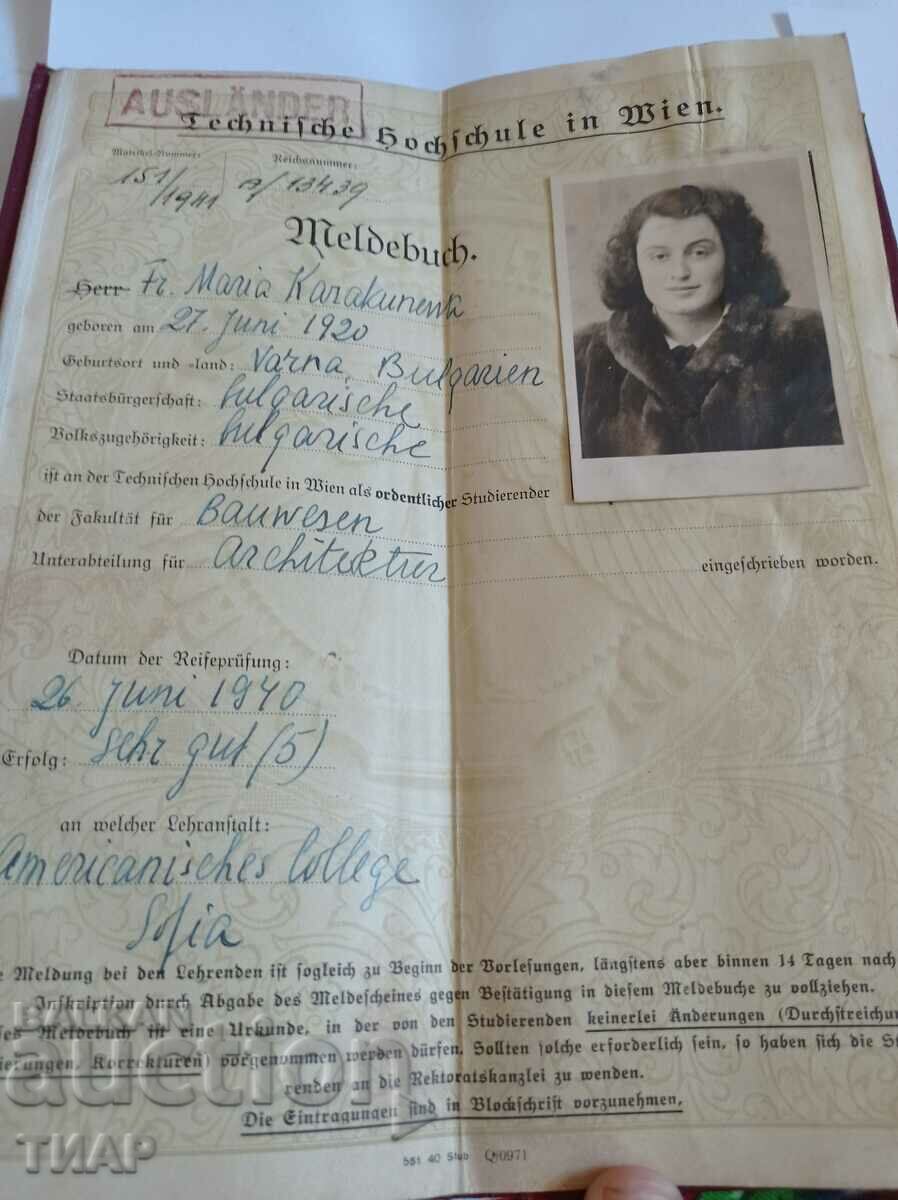 AUSLÄNDER
Technische Hochschule in Wien.
Matrikel-Nummer: Reichsnummer:
151/1941 a/13439
Meldebuch.
Herr Fr. Maria Karakunewa
geboren am 27. Juni 1920
Geburtsort und =land: Varna, Bulgarien
Staatsbürgerschaft: bulgarische
Volkszugehörigkeit: bulgarische
ist an der Technischen Hochschule in Wien als ordentlicher Studierender
der Fakultät für Bauwesen
Unterabteilung für Architektur eingeschrieben worden.
Datum der Reifeprüfung:
26. Juni 1940
Erfolg: sehr gut (5)
an welcher Lehranstalt:
Americanisches College
Sofia
e Meldung bei den Lehrenden ist sogleich zu Beginn der Vorlesungen, längstens aber binnen 14 Tagen nach
Inskription durch Abgabe des Meldescheines gegen Bestätigung in diesem Meldebuche zu vollziehen.
es Meldebuch ist eine Urkunde, in der von den Studierenden keinerlei Änderungen (Durchstreichun
ierungen, Korrekturen) vorgenommen werden dürfen. Sollten solche erforderlich sein, so haben sich die St
renden an die Rektoratskanzlei zu wenden.
Die Eintragungen sind in Blockschrift vorzunehmen.
551 40 Stub Q/0971
BALKAN
auction
ТИАР